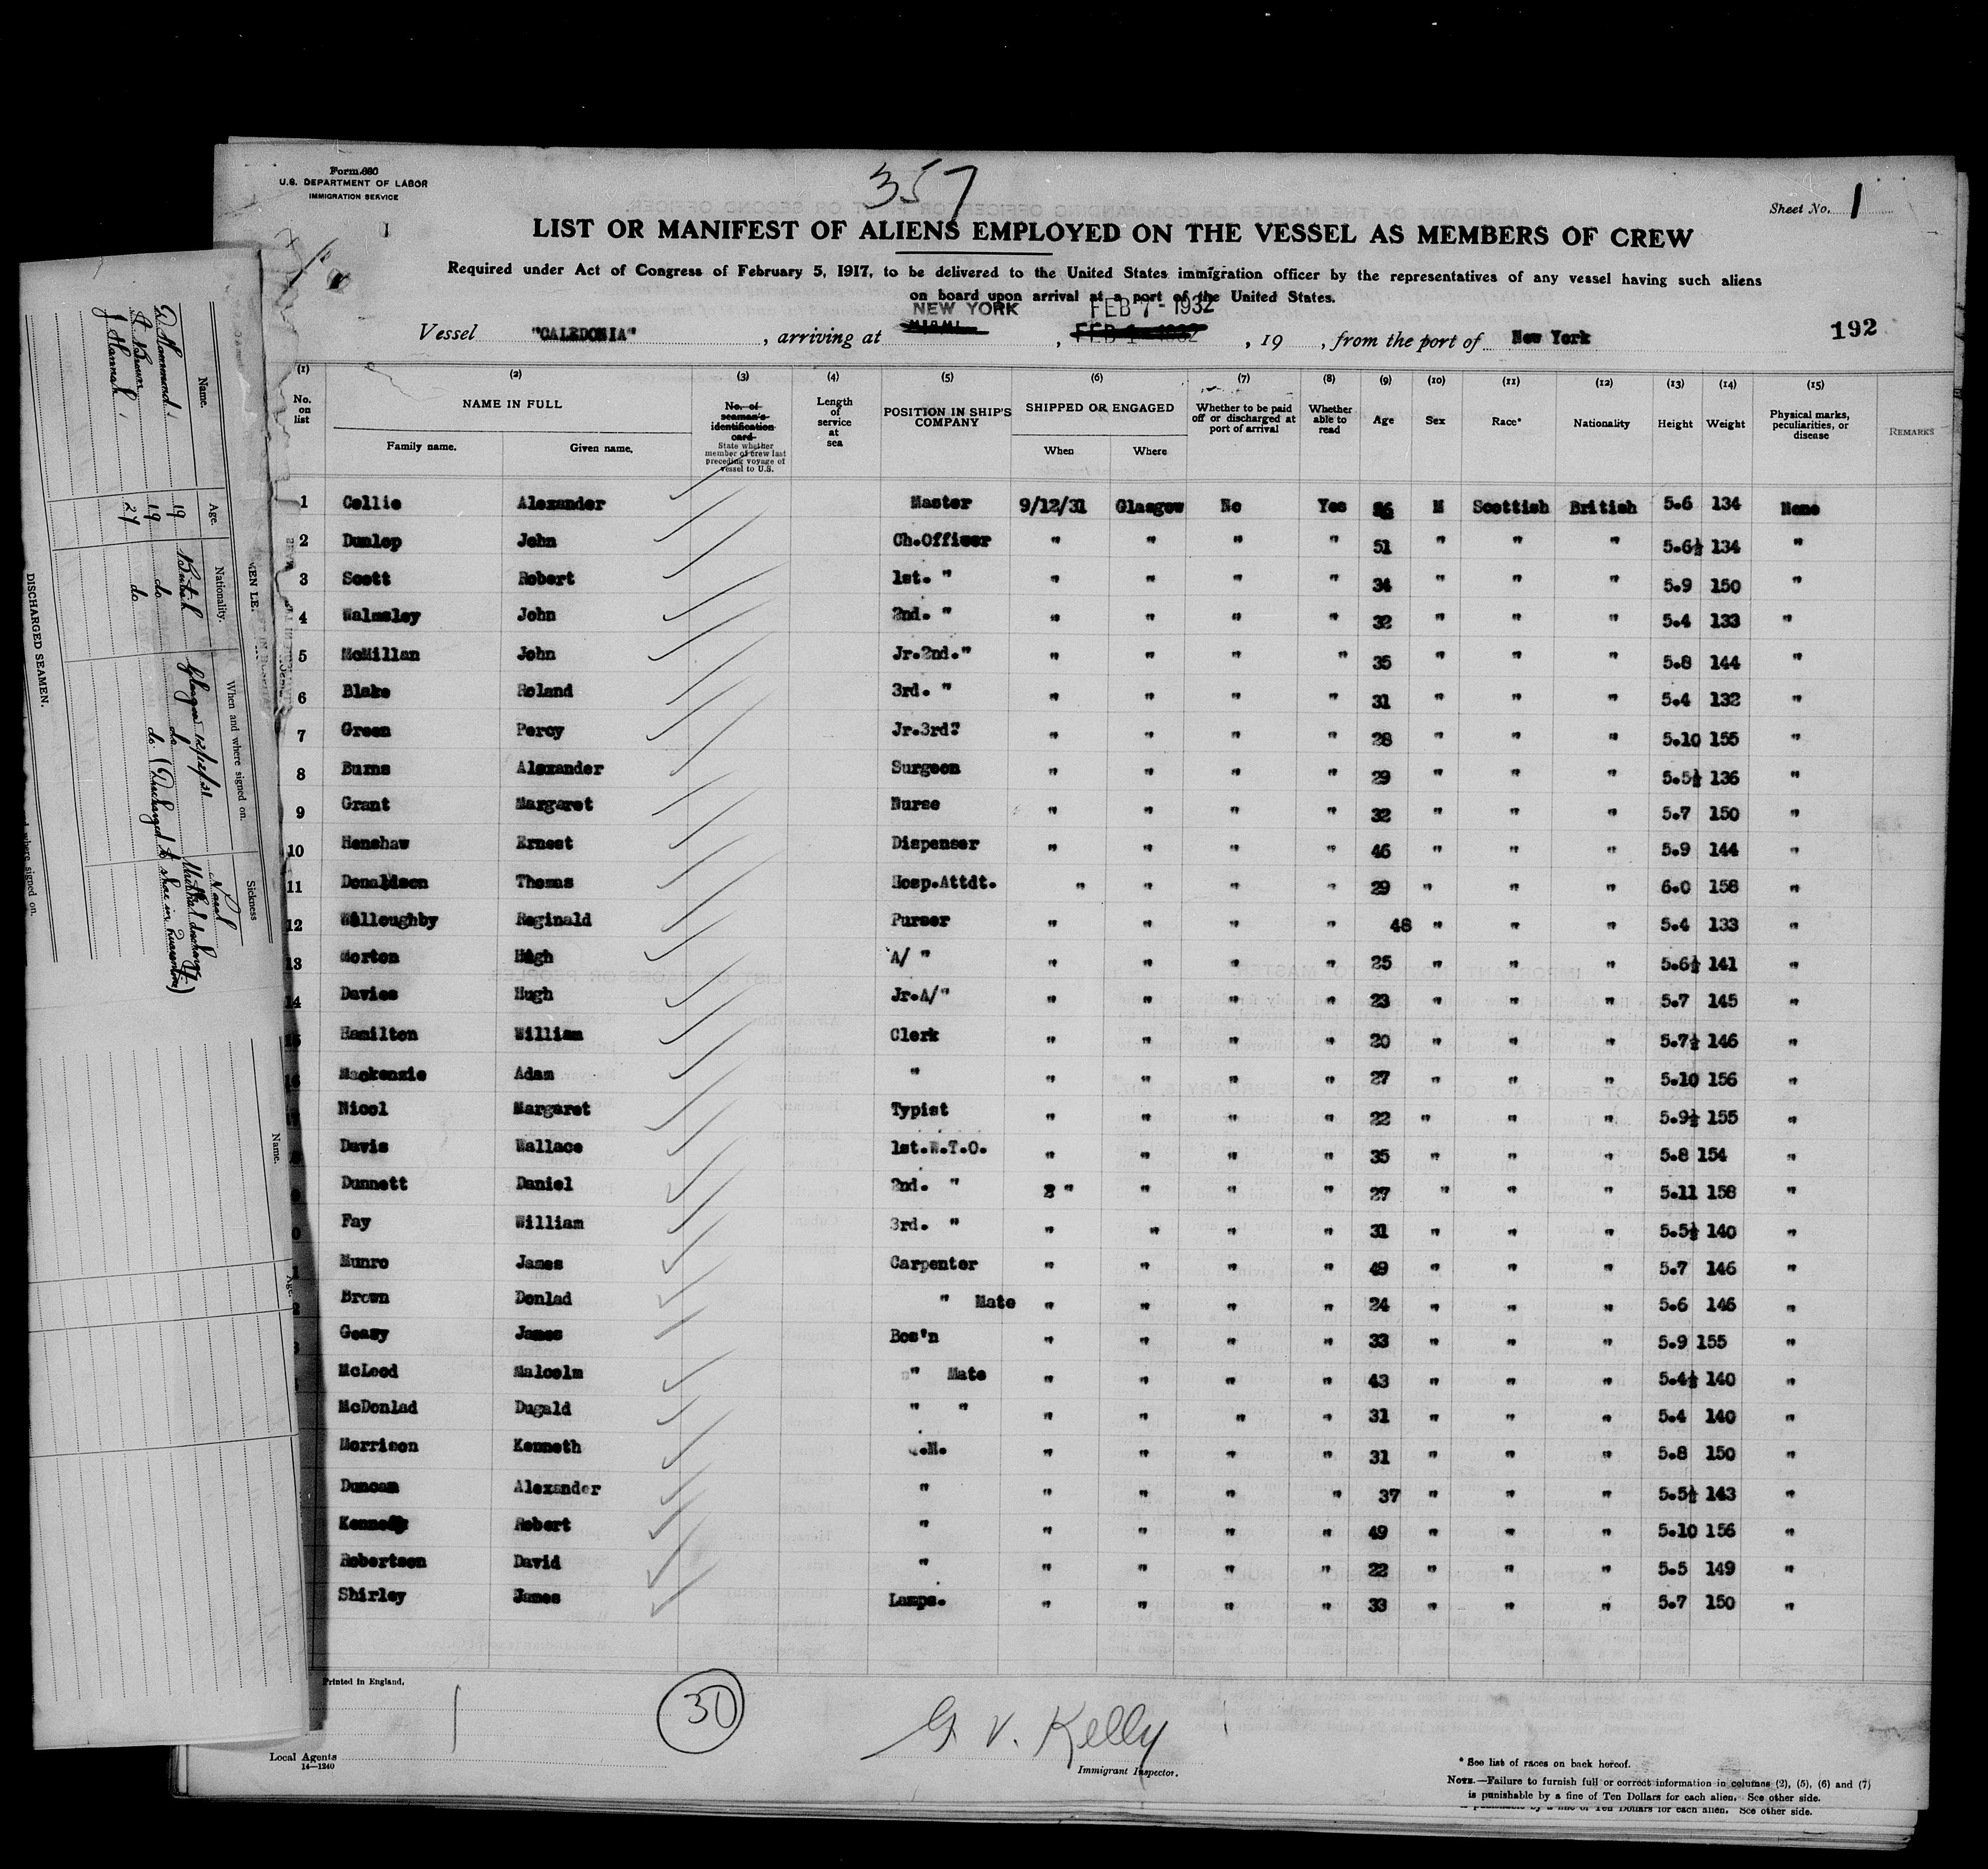 Form 680
U.S. DEPARTMENT OF LABOR
IMMIGRATION SERVICE
357
Sheet No. 1
LIST OR MANIFEST OF ALIENS EMPLOYED ON THE VESSEL AS MEMBERS OF CREW
Required under Act of Congress of February 5, 1917, to be delivered to the United States immigration officer by the representatives of any vessel having such aliens
on board upon arrival at a port of the United States.
NEW YORK FEB 7 - 1932
Vessel "CALEDONIA", arriving at MIAMI, FEB 1 - 1932, 19 , from the port of New York 192
(1) (2) (3) (4) (5) (6) (7) (8) (9) (10) (11) (12) (13) (14) (15)
No. on list NAME IN FULL Family name. Given name. No. of seaman's identification card. State whether member of crew last preceding voyage of vessel to U.S. Length of service at sea POSITION IN SHIP'S COMPANY SHIPPED OR ENGAGED When Where Whether to be paid off or discharged at port of arrival Whether able to read Age Sex Race* Nationality Height Weight Physical marks, peculiarities, or disease REMARKS
1 Collie Alexander Master 9/12/31 Glasgow No Yes M Scottish British 5.6 134 None
2 Dunlop John Ch.Officer " " " " 51 " " " 5.6½ 134 "
3 Scott Robert 1st. " " " " " 34 " " " 5.9 150 "
4 Walmsley John 2nd. " " " " " 32 " " " 5.4 133 "
5 McMillan John Jr.2nd." " " " " 35 " " " 5.8 144 "
6 Blake Roland 3rd. " " " " " 31 " " " 5.4 132 "
7 Green Percy Jr.3rd" " " " " 28 " " " 5.10 155 "
8 Burns Alexander Surgeon " " " " 29 " " " 5.5½ 136 "
9 Grant Margaret Nurse " " " " 32 " " " 5.7 150 "
10 Henshaw Ernest Dispenser " " " " 46 " " " 5.9 144 "
11 Donaldson Thomas Hosp.Attdt. " " " " 29 " " " 6.0 158 "
12 Willoughby Reginald Purser " " " " 48 " " " 5.4 133 "
13 Morton Hugh A/ " " " " " 25 " " " 5.6½ 141 "
14 Davies Hugh Jr.A/" " " " " 23 " " " 5.7 145 "
15 Hamilton William Clerk " " " " 20 " " " 5.7½ 146 "
16 Mackenzie Adam " " " " " 27 " " " 5.10 156 "
Nicol Margaret Typist " " " " 22 " " " 5.9½ 155 "
Davis Wallace 1st.W.T.O. " " " " 35 " " " 5.8 154 "
Dunnett Daniel 2nd. " " " " " 27 " " " 5.11 158 "
Fay William 3rd. " " " " " 31 " " " 5.5½ 140 "
Munro James Carpenter " " " " 49 " " " 5.7 146 "
Brown Donlad " Mate " " " " 24 " " " 5.6 146 "
Geasy James Bos'n " " " " 33 " " " 5.9 155 "
McLeod Malcolm " Mate " " " " 43 " " " 5.4½ 140 "
McDonlad Dugald " " " " " " 31 " " " 5.4 140 "
Morrison Kenneth Q.M. " " " " 31 " " " 5.8 150 "
Duncan Alexander " " " " " 37 " " " 5.5½ 143 "
Kennedy Robert " " " " " 49 " " " 5.10 156 "
Robertson David " " " " " 22 " " " 5.5 149 "
Shirley James Lamps. " " " " 33 " " " 5.7 150 "
Printed in England.
30
G. V. Kelly
Immigrant Inspector.
Local Agents
14—1240
* See list of races on back hereof.
NOTE.—Failure to furnish full or correct information in columns (2), (5), (6) and (7)
is punishable by a fine of Ten Dollars for each alien. See other side.
is punishable by a fine of Ten Dollars for each alien. See other side.
Name. Age. Nationality. When and where signed on. Sickness
D Hammond 19 British Glasgow 12/12/31
A Brown 19 do do Mutual discharge
J Hannah 27 do do (Discharged to
DISCHARGED SEAMEN.
where signed on.
Name. Age.